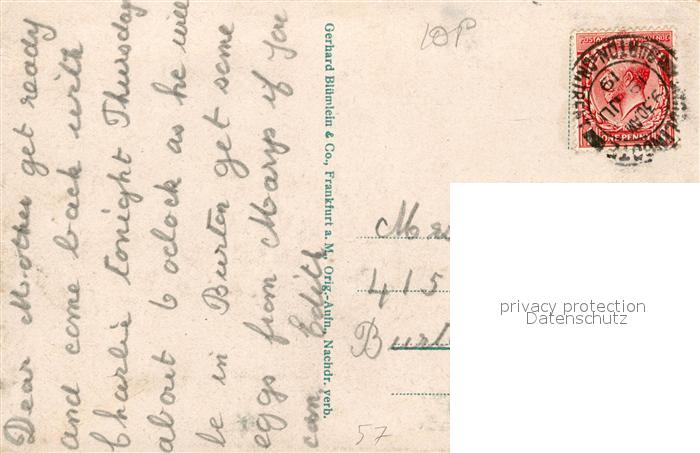 Dear Mother get ready
and come back with
Charlie tonight Thursday
about 6 oclock as he will
be in Burton get some
eggs from Marys if you
can. Edith
Gerhard Blümlein & Co., Frankfurt a. M., Orig.-Aufn., Nachdr. verb.
LDP
BURTON-ON-TRENT
9.30AM
JU
19
ONE PENNY
415
57
privacy protection
Datenschutz